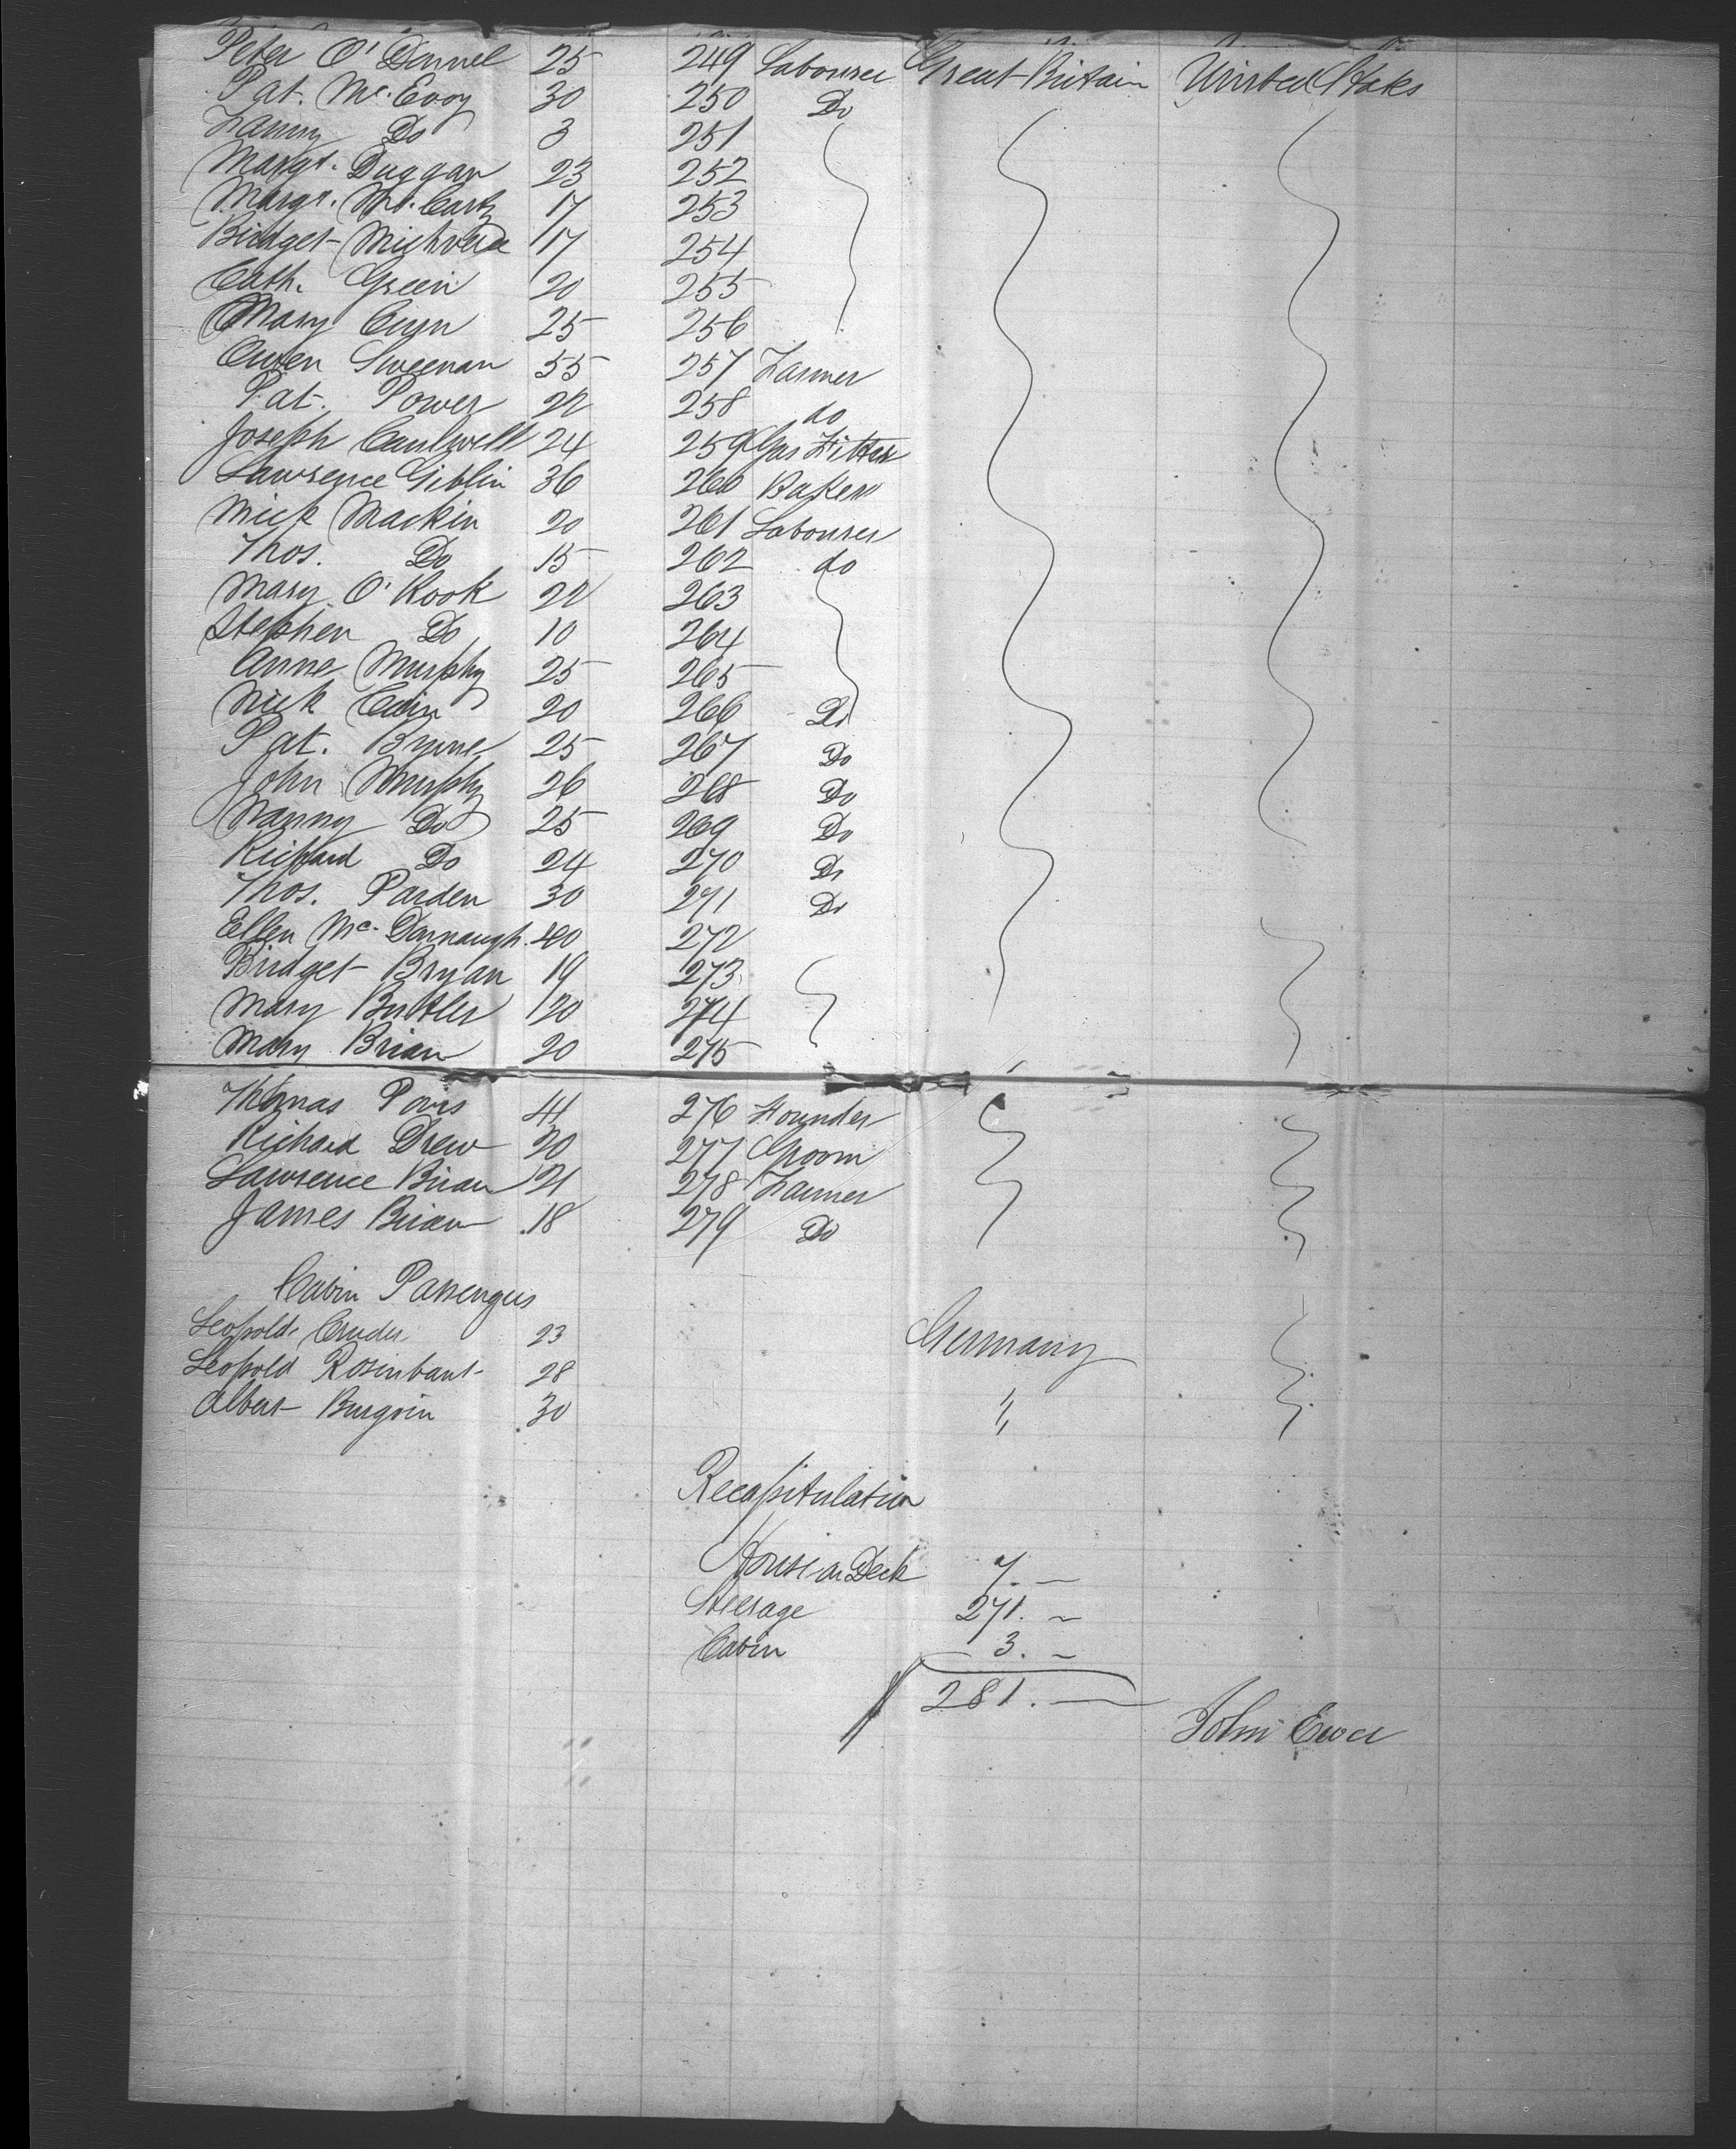 Peter O' Donnel 25 249 Labourer Great Britain United States
Pat. Mc. Evoy 30 250 Do
Fanny Do 3 251
Margt. Duggan 23 252
Margt. Mc. Carty 17 253
Bridget 17 254
Cath. Green 20 255
Mary 25 256
Owen Sweenan 55 257 Farmer
Pat. Power 22 258 do
Joseph Caulwell 24 259 Gas Fitter
Lawrence Giblin 36 260 Baker
Mick Mackin 20 261 Labourer
Thos. Do 15 262 do
Mary O' Rook 22 263
Stephen Do 10 264
Anne Murphy 25 265
Mick 20 266 Do
Pat. Byrne 25 267 Do
John Murphy 26 268 Do
Nanny Do 25 269 Do
Richard Do 24 270 Do
Thos. Parden 30 271 Do
Ellen Mc. Darnaugh 40 272
Bridget Bryan 19 273
Mary Butler 20 274
Mary Brian 20 275
Thomas 41 276 Founder
Richard Drew 20 277 Groom
Lawrence Brian 21 278 Farmer
James Brian 18 279 Do
Cabin Passengers
Leopold 23 Germany
Leopold Rosinbaut 28
Albert Burgoin 30 "
Recapitulation
House on Deck 7. —
Steerage 271. ~
Cabin 3. ~
281. —
John Ewer